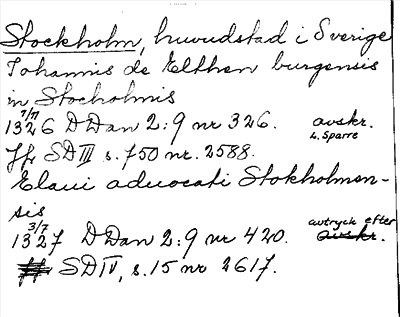 Stockholm, huvudstad i Sverige
Johannis de Elthen burgensis
in Stocholmis
7/77
1326 DDan 2:9 nr 326. avskr.
L. Sparre
Jfr SD III s. 750 nr. 2588.
Elaui aduocati Stokholmen-
sis
3/7
1327 DDan 2:9 nr 420. avtryck efter
avskr.
Jfr SD IV, s. 15 nr 2617.